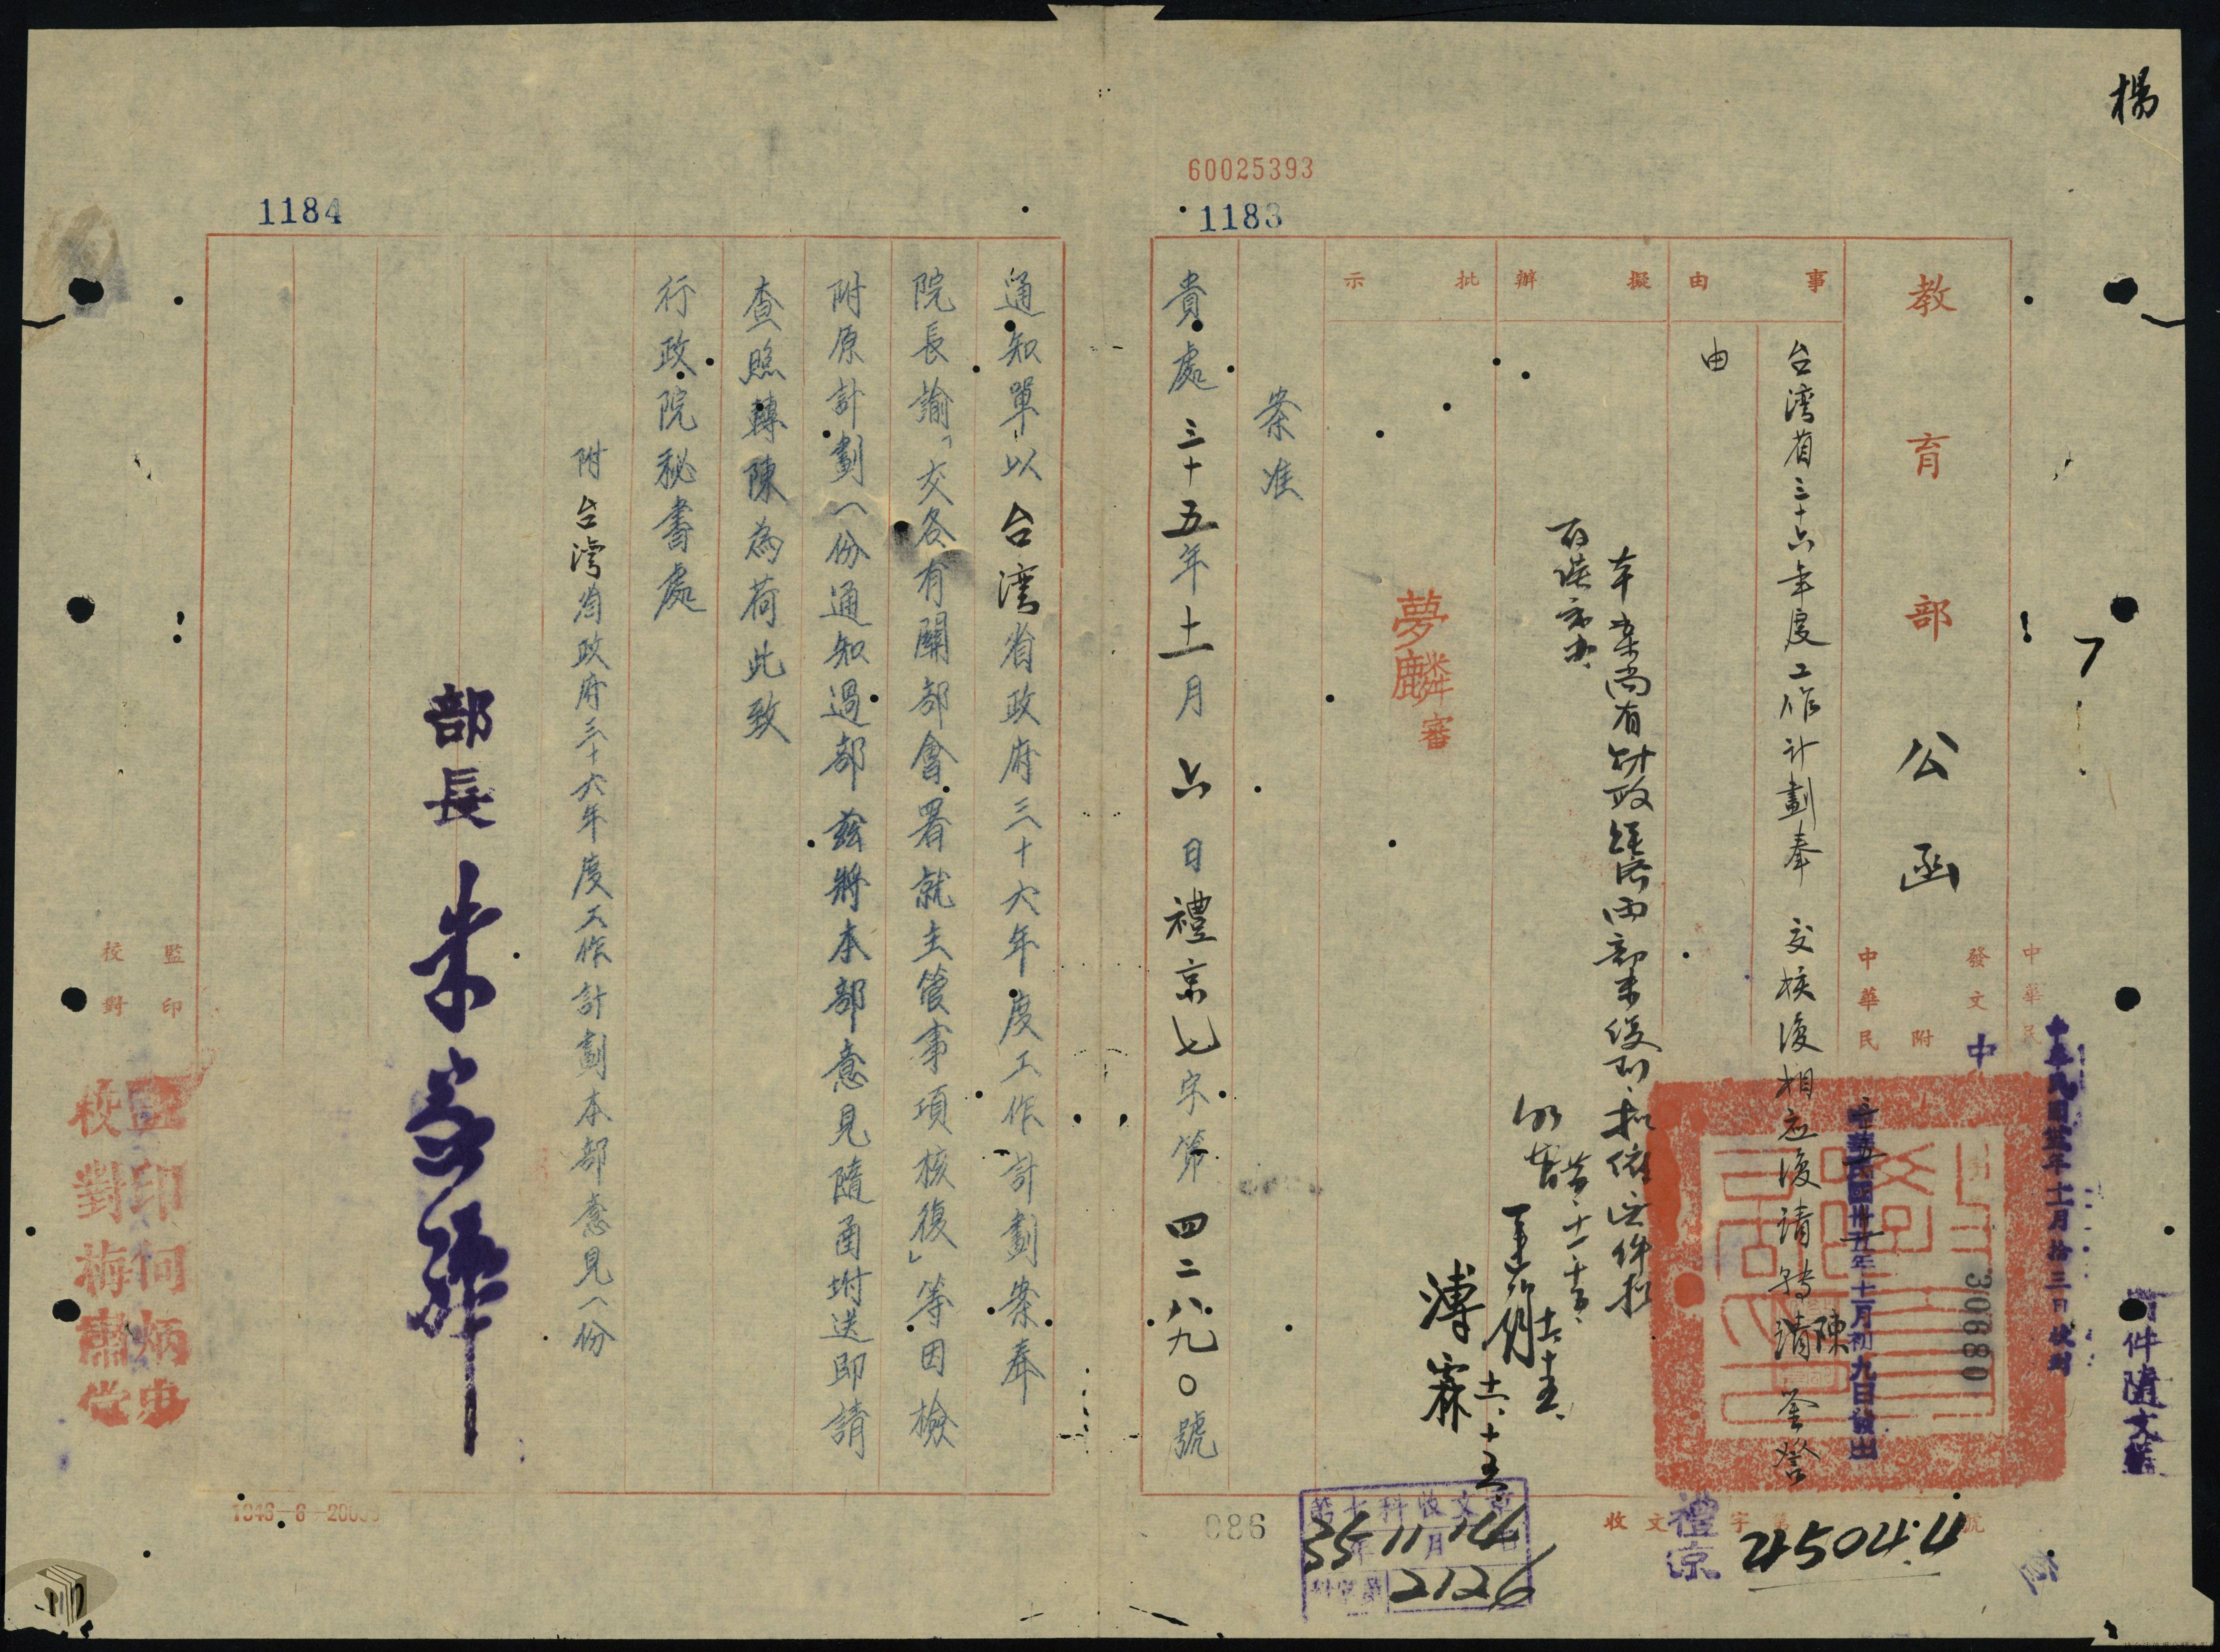 楊
60025393
1183
教育部公函
中華民
中華民國卅五年十一月拾三日收到
附件隨文
發文
附
30680
中華民
中華民國卅五年十一月初九日發出
事由
台湾省三十六年度工作計劃奉 交核復相应復請轉陳
由
擬辦
本案尚有財政經濟兩部未復到
批示
夢麟審
溥霖
十一、十五、
案准
貴處三十五年十一月六日禮京七字第四二八九〇號
收文禮京字第45044號
第七科收文章
35年11月14日
2126
086
1184
通知單以台湾省政府三十六年度工作計劃案奉
院長諭「交各有關部會署就主管事項核復」等因檢
附原計劃一份通知過部茲將本部意見隨函坿送即請
查照轉陳為荷此致
行政院秘書處
附台灣省政府三十六年度工作計劃本部意見一份
部長朱家驊
監印
校對
監印何炳
校對梅肅
1946-6-2000